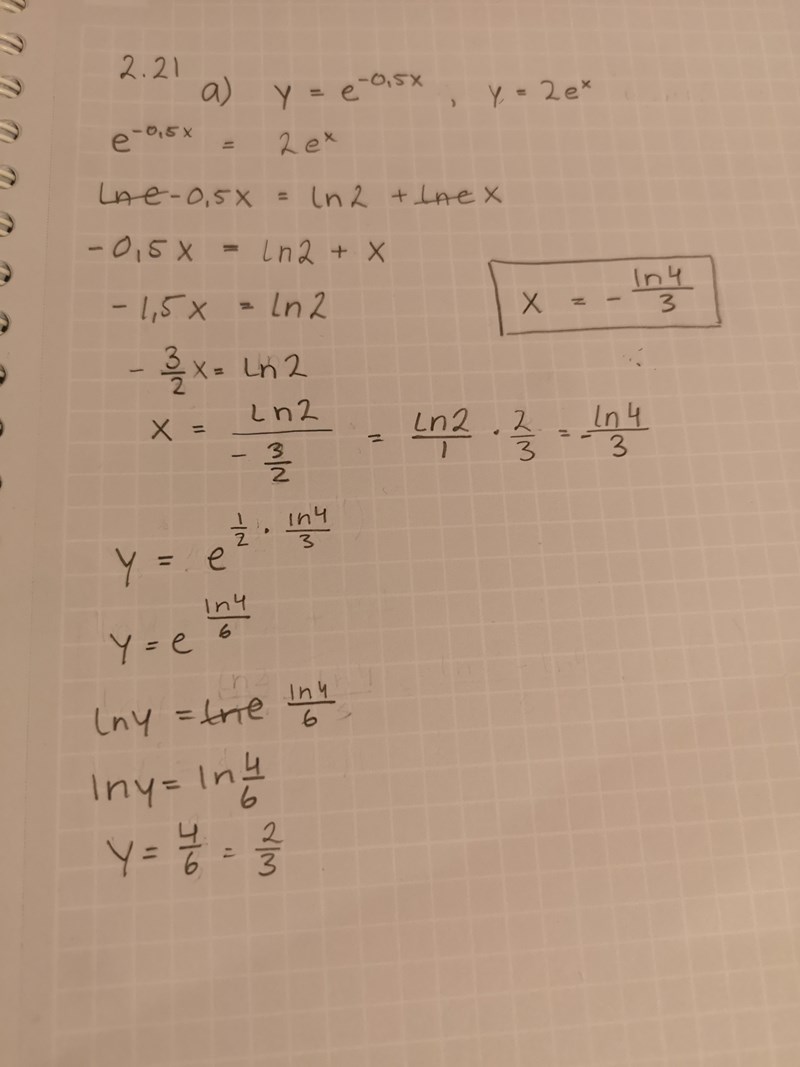 2.21
a) y = e^{-0,5x} , y = 2e^x
e^{-0,5x} = 2e^x
ln e -0,5x = ln2 + ln e x
-0,5x = ln2 + x
-1,5x = ln2
x = - ln4/3
- 3/2 x = Ln2
x = Ln2/(- 3/2) = Ln2/1 · 2/3 = - ln4/3
y = e^{1/2 · ln4/3}
y = e^{ln4/6}
Lny = lne ln4/6
lny = ln 4/6
y = 4/6 = 2/3